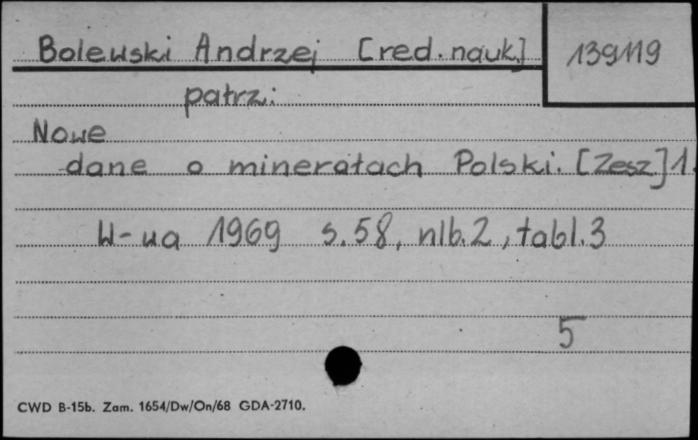 Bolewski Andrzej [red. nauk.] 139119
patrz:
Nowe
dane o minerałach Polski. [Zesz.] 1.
W-wa 1969 s. 58, nlb. 2, tabl. 3
5
CWD B-15b. Zam. 1654/Dw/On/68 GDA-2710.